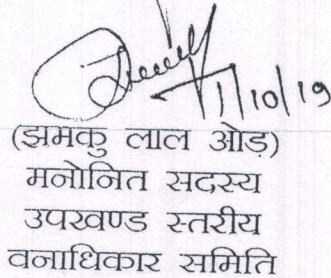 1/10/19
(झमकु लाल ओड़)
मनोनित सदस्य
उपखण्ड स्तरीय
वनाधिकार समिति